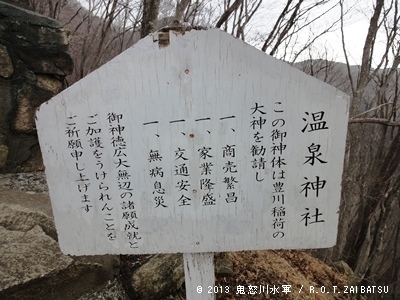 温泉神社
この御神体は豊川稲荷の
大神を勧請し
一、商売繁昌
一、家業隆盛
一、交通安全
一、無病息災
御神徳広大無辺の諸願成就と
ご加護をうけられんことを
ご祈願申し上げます
© 2013 鬼怒川水軍 / R.O.T.ZAIBATSU